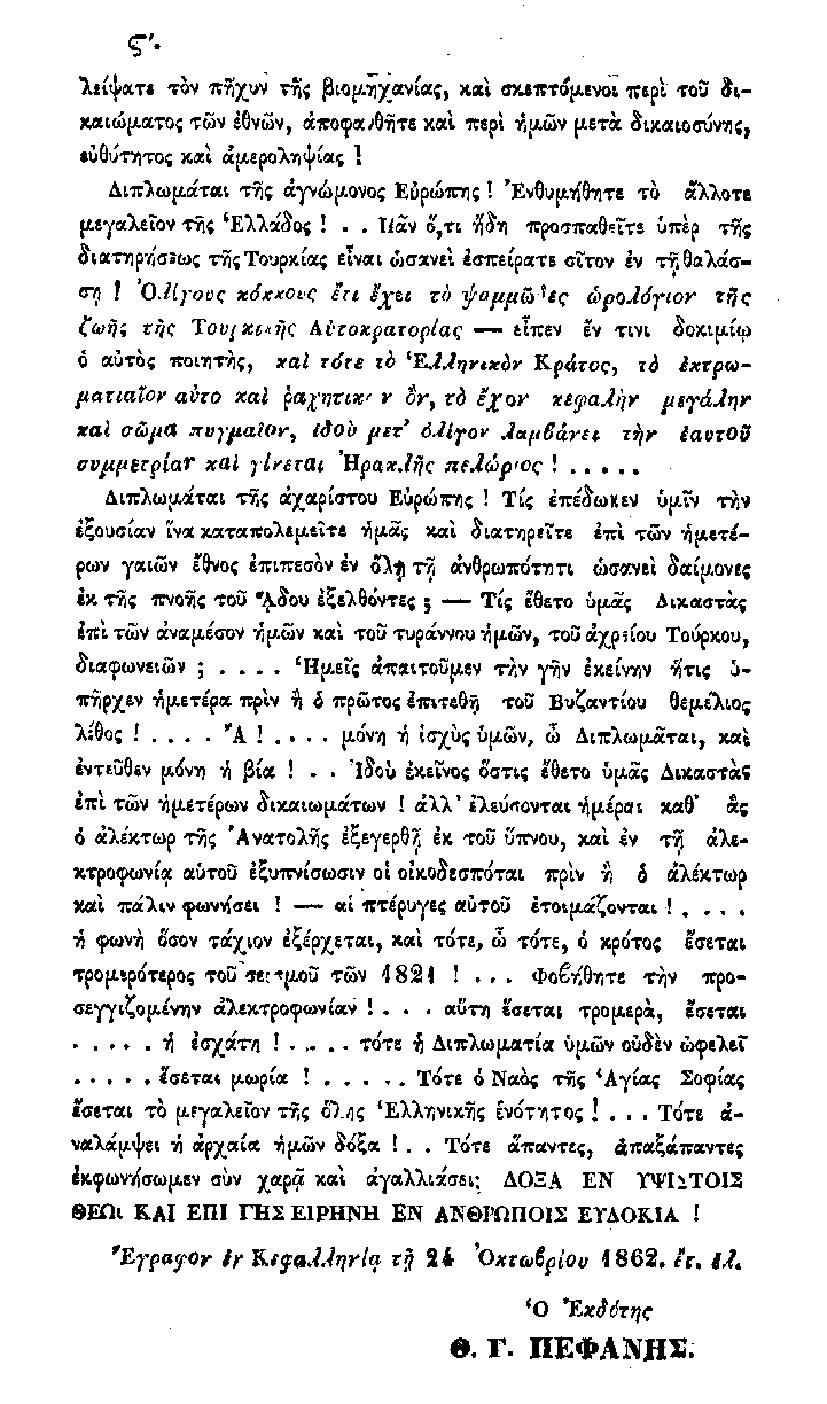 ς'.
λείψατε τὸν πῆχυν τῆς βιομηχανίας, καὶ σκεπτόμενοι περὶ τοῦ δι-
καιώματος τῶν ἐθνῶν, ἀποφανθῆτε καὶ περὶ ἡμῶν μετὰ δικαιοσύνης,
εὐθύτητος καὶ ἀμεροληψίας !
Διπλωμάται τῆς ἀγνώμονος Εὐρώπης ! Ἐνθυμήθητε τὸ ἄλλοτε
μεγαλεῖον τῆς Ἑλλάδος ! . . Πᾶν ὅ,τι ἤδη προσπαθεῖτε ὑπὲρ τῆς
διατηρήσεως τῆς Τουρκίας εἶναι ὡσανεὶ ἐσπείρατε σῖτον ἐν τῇ θαλάσ-
σῃ ! Ὀλίγους κόκκους ἔτι ἔχει τὸ ψαμμῶδες ὡρολόγιον τῆς
ζωῆς τῆς Τουρκικῆς Αὐτοκρατορίας — εἶπεν ἔν τινι δοκιμίῳ
ὁ αὐτὸς ποιητὴς, καὶ τότε τὸ Ἑλληνικὸν Κράτος, τὸ ἐκτρω-
ματιαῖον αὐτο καὶ ῥαχητικὸν ὂν, τὸ ἔχον κεφαλὴν μεγάλην
καὶ σῶμα πυγμαῖον, ἰδοὺ μετ' ὀλίγον λαμβάνει τὴν ἑαυτοῦ
συμμετρίαν καὶ γίνεται Ἡρακλῆς πελώριος ! . . . . .
Διπλωμάται τῆς ἀχαρίστου Εὐρώπης ! Τίς ἐπέδωκεν ὑμῖν τὴν
ἐξουσίαν ἵνα καταπολεμεῖτε ἡμᾶς καὶ διατηρεῖτε ἐπὶ τῶν ἡμετέ-
ρων γαιῶν ἔθνος ἐπιπεσὸν ἐν ὅλῃ τῇ ἀνθρωπότητι ὡσανεὶ δαίμονες
ἐκ τῆς πνοῆς τοῦ ᾍδου ἐξελθόντες ; — Τίς ἔθετο ὑμᾶς Δικαστὰς
ἐπὶ τῶν ἀναμέσον ἡμῶν καὶ τοῦ τυράννου ἡμῶν, τοῦ ἀχρείου Τούρκου,
διαφωνειῶν ; . . . . Ἡμεῖς ἀπαιτοῦμεν τὴν γῆν ἐκείνην ἥτις ὑ-
πῆρχεν ἡμετέρα πρὶν ἢ ὁ πρῶτος ἐπιτεθῇ τοῦ Βυζαντίου θεμέλιος
λίθος ! . . . . Ἄ ! . . . . μόνη ἡ ἰσχὺς ὑμῶν, ὦ Διπλωμᾶται, καὶ
ἐντεῦθεν μόνη ἡ βία ! . . Ἰδοὺ ἐκεῖνος ὅστις ἔθετο ὑμᾶς Δικαστὰς
ἐπὶ τῶν ἡμετέρων δικαιωμάτων ! ἀλλ' ἐλεύσονται ἡμέραι καθ' ἃς
ὁ ἀλέκτωρ τῆς Ἀνατολῆς ἐξεγερθῇ ἐκ τοῦ ὕπνου, καὶ ἐν τῇ ἀλε-
κτροφωνίᾳ αὐτοῦ ἐξυπνίσωσιν οἱ οἰκοδεσπόται πρὶν ἢ ὁ ἀλέκτωρ
καὶ πάλιν φωνήσει ! — αἱ πτέρυγες αὐτοῦ ἑτοιμάζονται ! . . . .
ἡ φωνὴ ὅσον τάχιον ἐξέρχεται, καὶ τότε, ὦ τότε, ὁ κρότος ἔσεται
τρομερότερος τοῦ σεισμοῦ τῶν 1821 ! . . . Φοβήθητε τὴν προ-
σεγγιζομένην ἀλεκτροφωνίαν ! . . . αὕτη ἔσεται τρομερὰ, ἔσεται
. . . . . ἡ ἐσχάτη ! . . . . τότε ἡ Διπλωματία ὑμῶν οὐδὲν ὠφελεῖ
. . . . . ἔσεται μωρία ! . . . . . Τότε ὁ Ναὸς τῆς Ἁγίας Σοφίας
ἔσεται τὸ μεγαλεῖον τῆς ὅλης Ἑλληνικῆς ἑνότητος ! . . . Τότε ἀ-
ναλάμψει ἡ ἀρχαία ἡμῶν δόξα ! . . Τότε ἅπαντες, ἁπαξάπαντες
ἐκφωνήσωμεν σὺν χαρᾷ καὶ ἀγαλλιάσει; ΔΟΞΑ ΕΝ ΥΨΙΣΤΟΙΣ
ΘΕΩι ΚΑΙ ΕΠΙ ΓΗΣ ΕΙΡΗΝΗ ΕΝ ΑΝΘΡΩΠΟΙΣ ΕΥΔΟΚΙΑ !
Ἔγραφον ἐν Κεφαλληνίᾳ τῇ 24 Ὀκτωβρίου 1862. ἔτ. ἑλ.
Ὁ Ἐκδότης
Θ. Γ. ΠΕΦΑΝΗΣ.